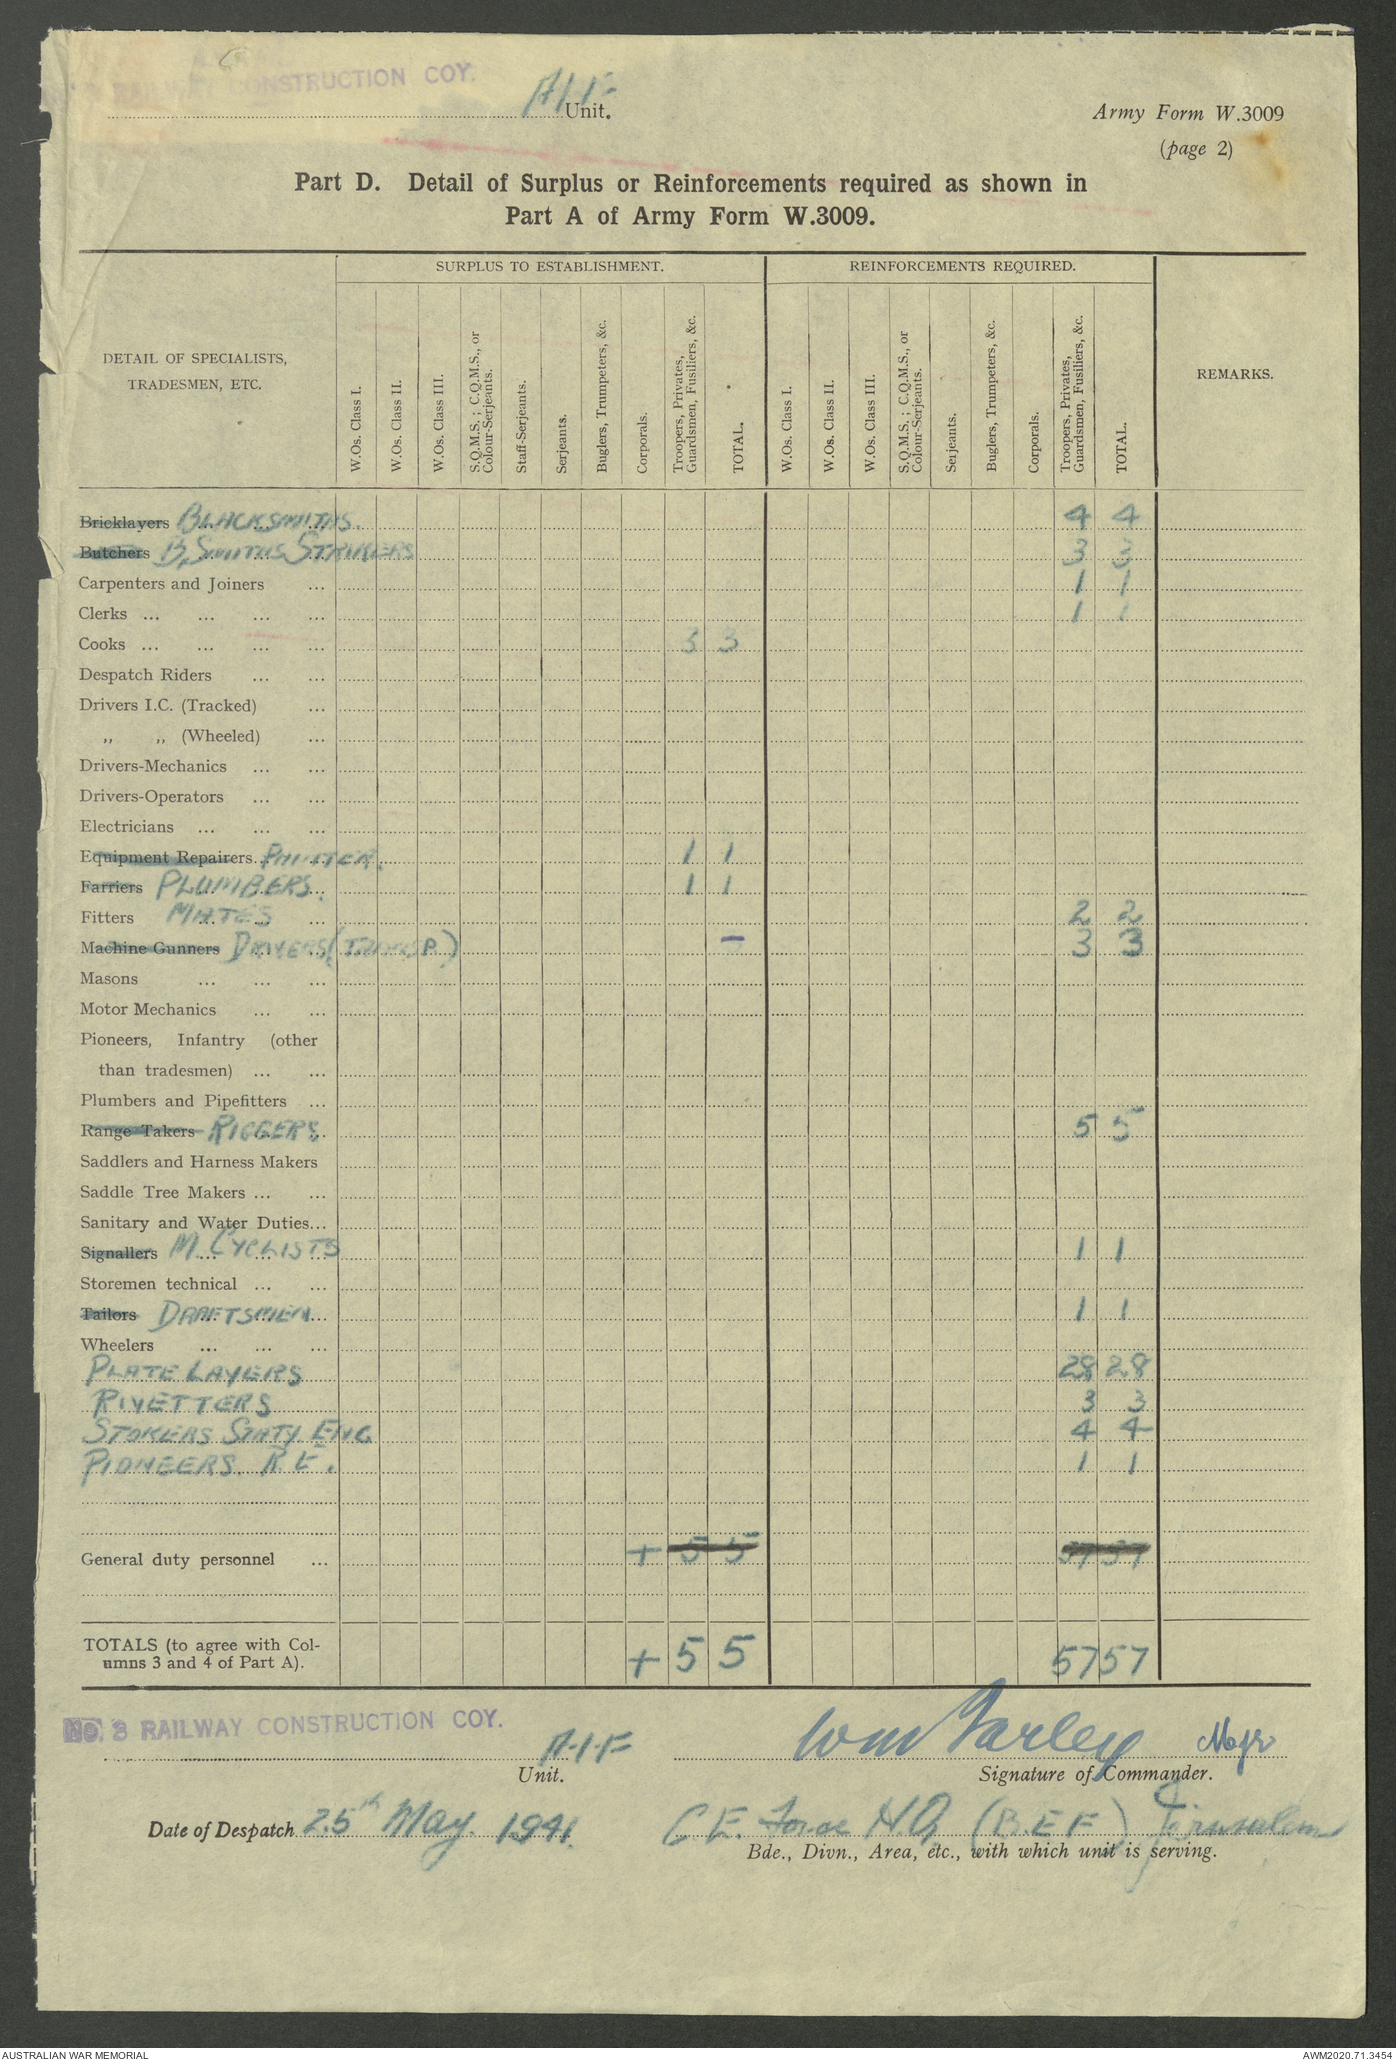 RAILWAY CONSTRUCTION COY.
A.I.F Unit.
Army Form W.3009
(page 2)
Part D. Detail of Surplus or Reinforcements required as shown in
Part A of Army Form W.3009.
SURPLUS TO ESTABLISHMENT. REINFORCEMENTS REQUIRED.
DETAIL OF SPECIALISTS,
TRADESMEN, ETC.
W.Os. Class I.
W.Os. Class II.
W.Os. Class III.
S.Q.M.S. ; C.Q.M.S., or
Colour-Serjeants.
Staff-Serjeants.
Serjeants.
Buglers, Trumpeters, &c.
Corporals.
Troopers, Privates,
Guardsmen, Fusiliers, &c.
TOTAL.
W.Os. Class I.
W.Os. Class II.
W.Os. Class III.
S.Q.M.S. ; C.Q.M.S., or
Colour-Serjeants.
Serjeants.
Buglers, Trumpeters, &c.
Corporals.
Troopers, Privates,
Guardsmen, Fusiliers, &c.
TOTAL.
REMARKS.
Bricklayers BLACKSMITHS. 4 4
Butchers B,SMITHS STRIKERS 3 3
Carpenters and Joiners ... 1 1
Clerks ... ... ... ... 1 1
Cooks ... ... ... ... 3 3
Despatch Riders ... ...
Drivers I.C. (Tracked) ...
,, ,, (Wheeled) ...
Drivers-Mechanics ... ...
Drivers-Operators ... ...
Electricians ... ... ...
Equipment Repairers PAINTER. 1 1
Farriers PLUMBERS. 1 1
Fitters MATES ... 2 2
Machine Gunners DRIVERS (TRANSP.) – 3 3
Masons ... ... ...
Motor Mechanics ... ...
Pioneers, Infantry (other
than tradesmen) ... ...
Plumbers and Pipefitters ...
Range Takers RIGGERS. 5 5
Saddlers and Harness Makers
Saddle Tree Makers ... ...
Sanitary and Water Duties...
Signallers M. CYCLISTS 1 1
Storemen technical ... ...
Tailors DRAFTSMEN... 1 1
Wheelers ... ... ...
PLATE LAYERS 28 28
RIVETTERS 3 3
STOKERS STATY. ENG 4 4
PIONEERS. R.E. 1 1
General duty personnel ... + 5 5 57 57
TOTALS (to agree with Col-
umns 3 and 4 of Part A). + 5 5 57 57
NO. 3 RAILWAY CONSTRUCTION COY.
A.I.F Wm Farley Majr
Unit. Signature of Commander.
Date of Despatch 25th May. 1941. C E. Force H.Q. (B.E.F) Jerusalem
Bde., Divn., Area, etc., with which unit is serving.
AUSTRALIAN WAR MEMORIAL AWM2020.71.3454